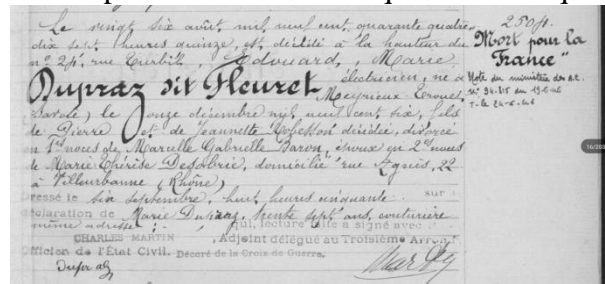 Le vingt six août, mil neuf cent, quarante quatre,
dix sept heures quinze, est décédé à la hauteur du
n° 24, rue Curbil, Edouard, Marie
Dupraz dit Fleuret électricien, né à
Meyrieux Trouet
Savoie) le onze décembre mil neuf cent six, fils
de Pierre et de Jeannette décédée, divorcé
en 1res noces de Marcelle Gabrielle Baron, époux en 2es noces
de Marie Thérèse Desobrie, domicilié rue Agnès, 22
à Villeurbanne (Rhône)
Dressé le six septembre, huit heures cinquante sur
déclaration de Marie Dupraz, trente sept ans, couturière
même adresse qui, lecture faite a signé avec
CHARLES MARTIN, Adjoint délégué au Troisième Arrond
Officier de l'État Civil. Décoré de la Croix de Guerre.
Dupraz
250f.
"Mort pour la
France"
Note du ministère des A.C.
16/203